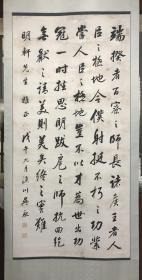 端揆者百寮之師長諸侯王者人
臣之極地今僕射挺不朽之功業
當人臣之極地豈不以才為世出功
冠一時挫思明跋扈之師抗回紇
無猒之請美則美矣終之實難
明軒先生雅正 戊午月川吳